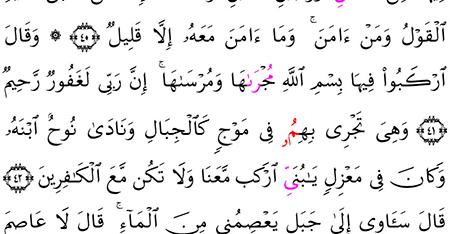 ٱلْقَوْلُ وَمَنْ ءَامَنَ ۚ وَمَا ءَامَنَ مَعَهُۥ إِلَّا قَلِيلٌ ﴿٤٠﴾ ۞ وَقَالَ
ٱرْكَبُوا۟ فِيهَا بِسْمِ ٱللَّهِ مُجْرَىٰهَا وَمُرْسَىٰهَا ۚ إِنَّ رَبِّى لَغَفُورٌ رَّحِيمٌ
﴿٤١﴾ وَهِىَ تَجْرِى بِهِمُۥ فِى مَوْجٍ كَٱلْجِبَالِ وَنَادَىٰ نُوحٌ ٱبْنَهُۥ
وَكَانَ فِى مَعْزِلٍ يَٰبُنَىِّ ٱرْكَب مَّعَنَا وَلَا تَكُن مَّعَ ٱلْكَٰفِرِينَ ﴿٤٢﴾
قَالَ سَـَٔاوِى إِلَىٰ جَبَلٍ يَعْصِمُنِى مِنَ ٱلْمَآءِ ۚ قَالَ لَا عَاصِمَ